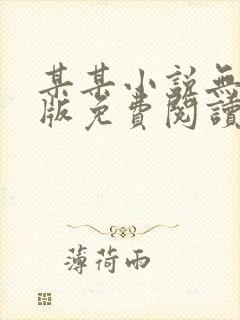 某某小說無
版免費閱讀
薄荷雨